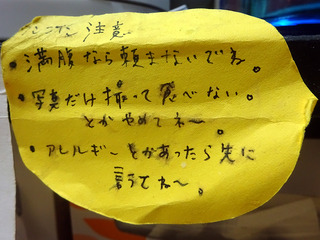 注意
・満腹なら頼まないでネ。
・写真だけ撮って食べない。
とかやめてネ〜
・アレルギーとかあったら先に
言ってネ〜。